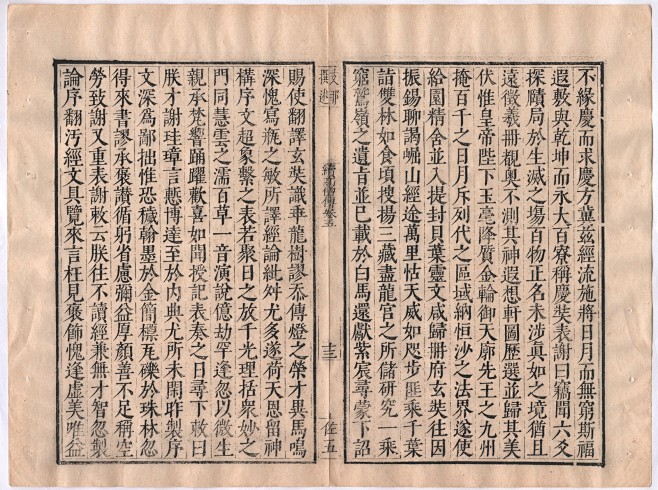 不緣慶而求慶方冀茲經流施將日月而無窮斯福
遐敷與乾坤而永大百寮稱慶奘表謝曰竊聞六爻
探賾局於生滅之場百物正名未涉真如之境猶且
遠徵羲冊覩奧不測其神遐想軒圖歷選並歸其美
伏惟皇帝陛下玉毫降質金輪御天廓先王之九州
掩百千之日月斥列代之區域納恒沙之法界遂使
給園精舍並入提封貝葉靈文咸歸冊府玄奘往因
振錫聊謁崛山經途萬里怙天威如咫步匪乘千葉
詣雙林如食頃搜揚三藏盡龍宮之所儲研究一乘
窮鷲嶺之遺旨並已載於白馬還獻紫宸尋蒙下詔
續高僧傳卷五
十三
賜使翻譯玄奘識乖龍樹謬忝傳燈之榮才異馬鳴
深愧寫瓶之敏所譯經論紕舛尤多遂荷天恩留神
構序文超象繫之表若聚日之放千光理括衆妙之
門同慧雲之濡百草一音演說億劫罕逢忽以微生
親承梵響踊躍歡喜如聞授記表奏之日尋下敕曰
朕才謝珪璋言慙博達至於內典尤所未閑昨製序
文深為鄙拙惟恐穢翰墨於金簡標瓦礫於珠林忽
得來書謬承褒讚循躬省慮彌益厚顏善不足稱空
勞致謝又重表謝敕云朕往不讀經兼無才智忽製
論序翻汚經文具覽來言枉見褒飾愧逢虛美唯益